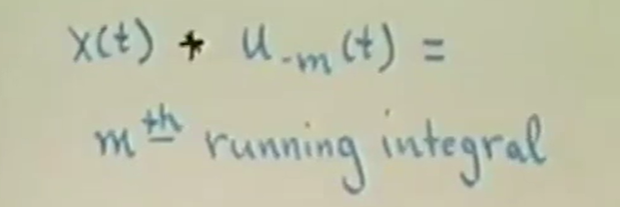 x(t) * u₋ₘ(t) =
mᵗʰ running integral